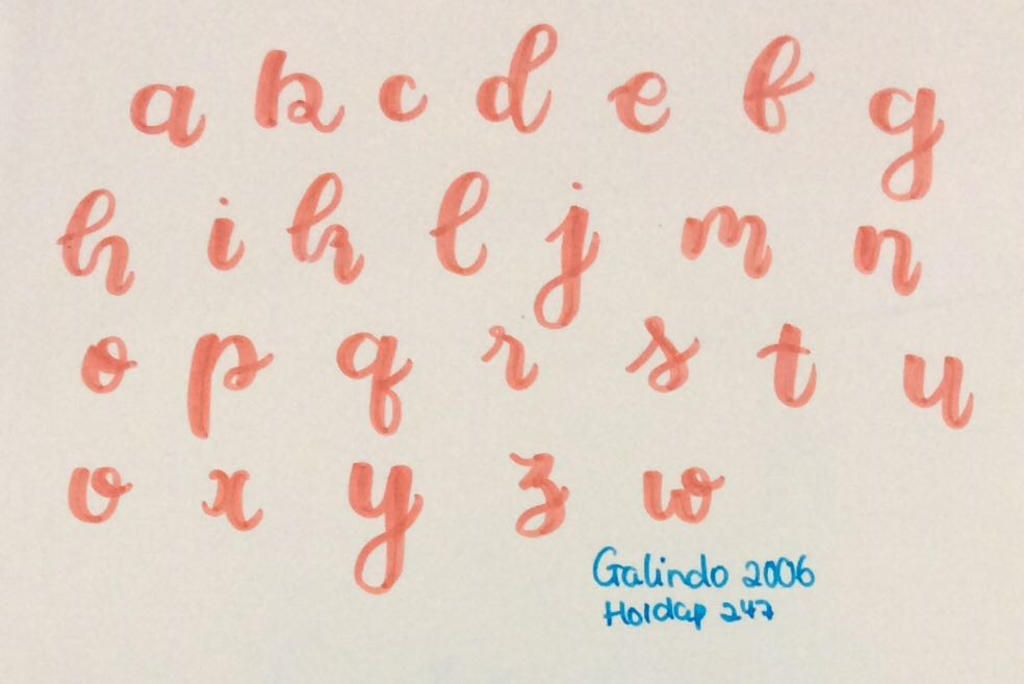 a b c d e f g
h i k l j m n
o p q r s t u
v x y z w
Galindo 2006
Holdap 247